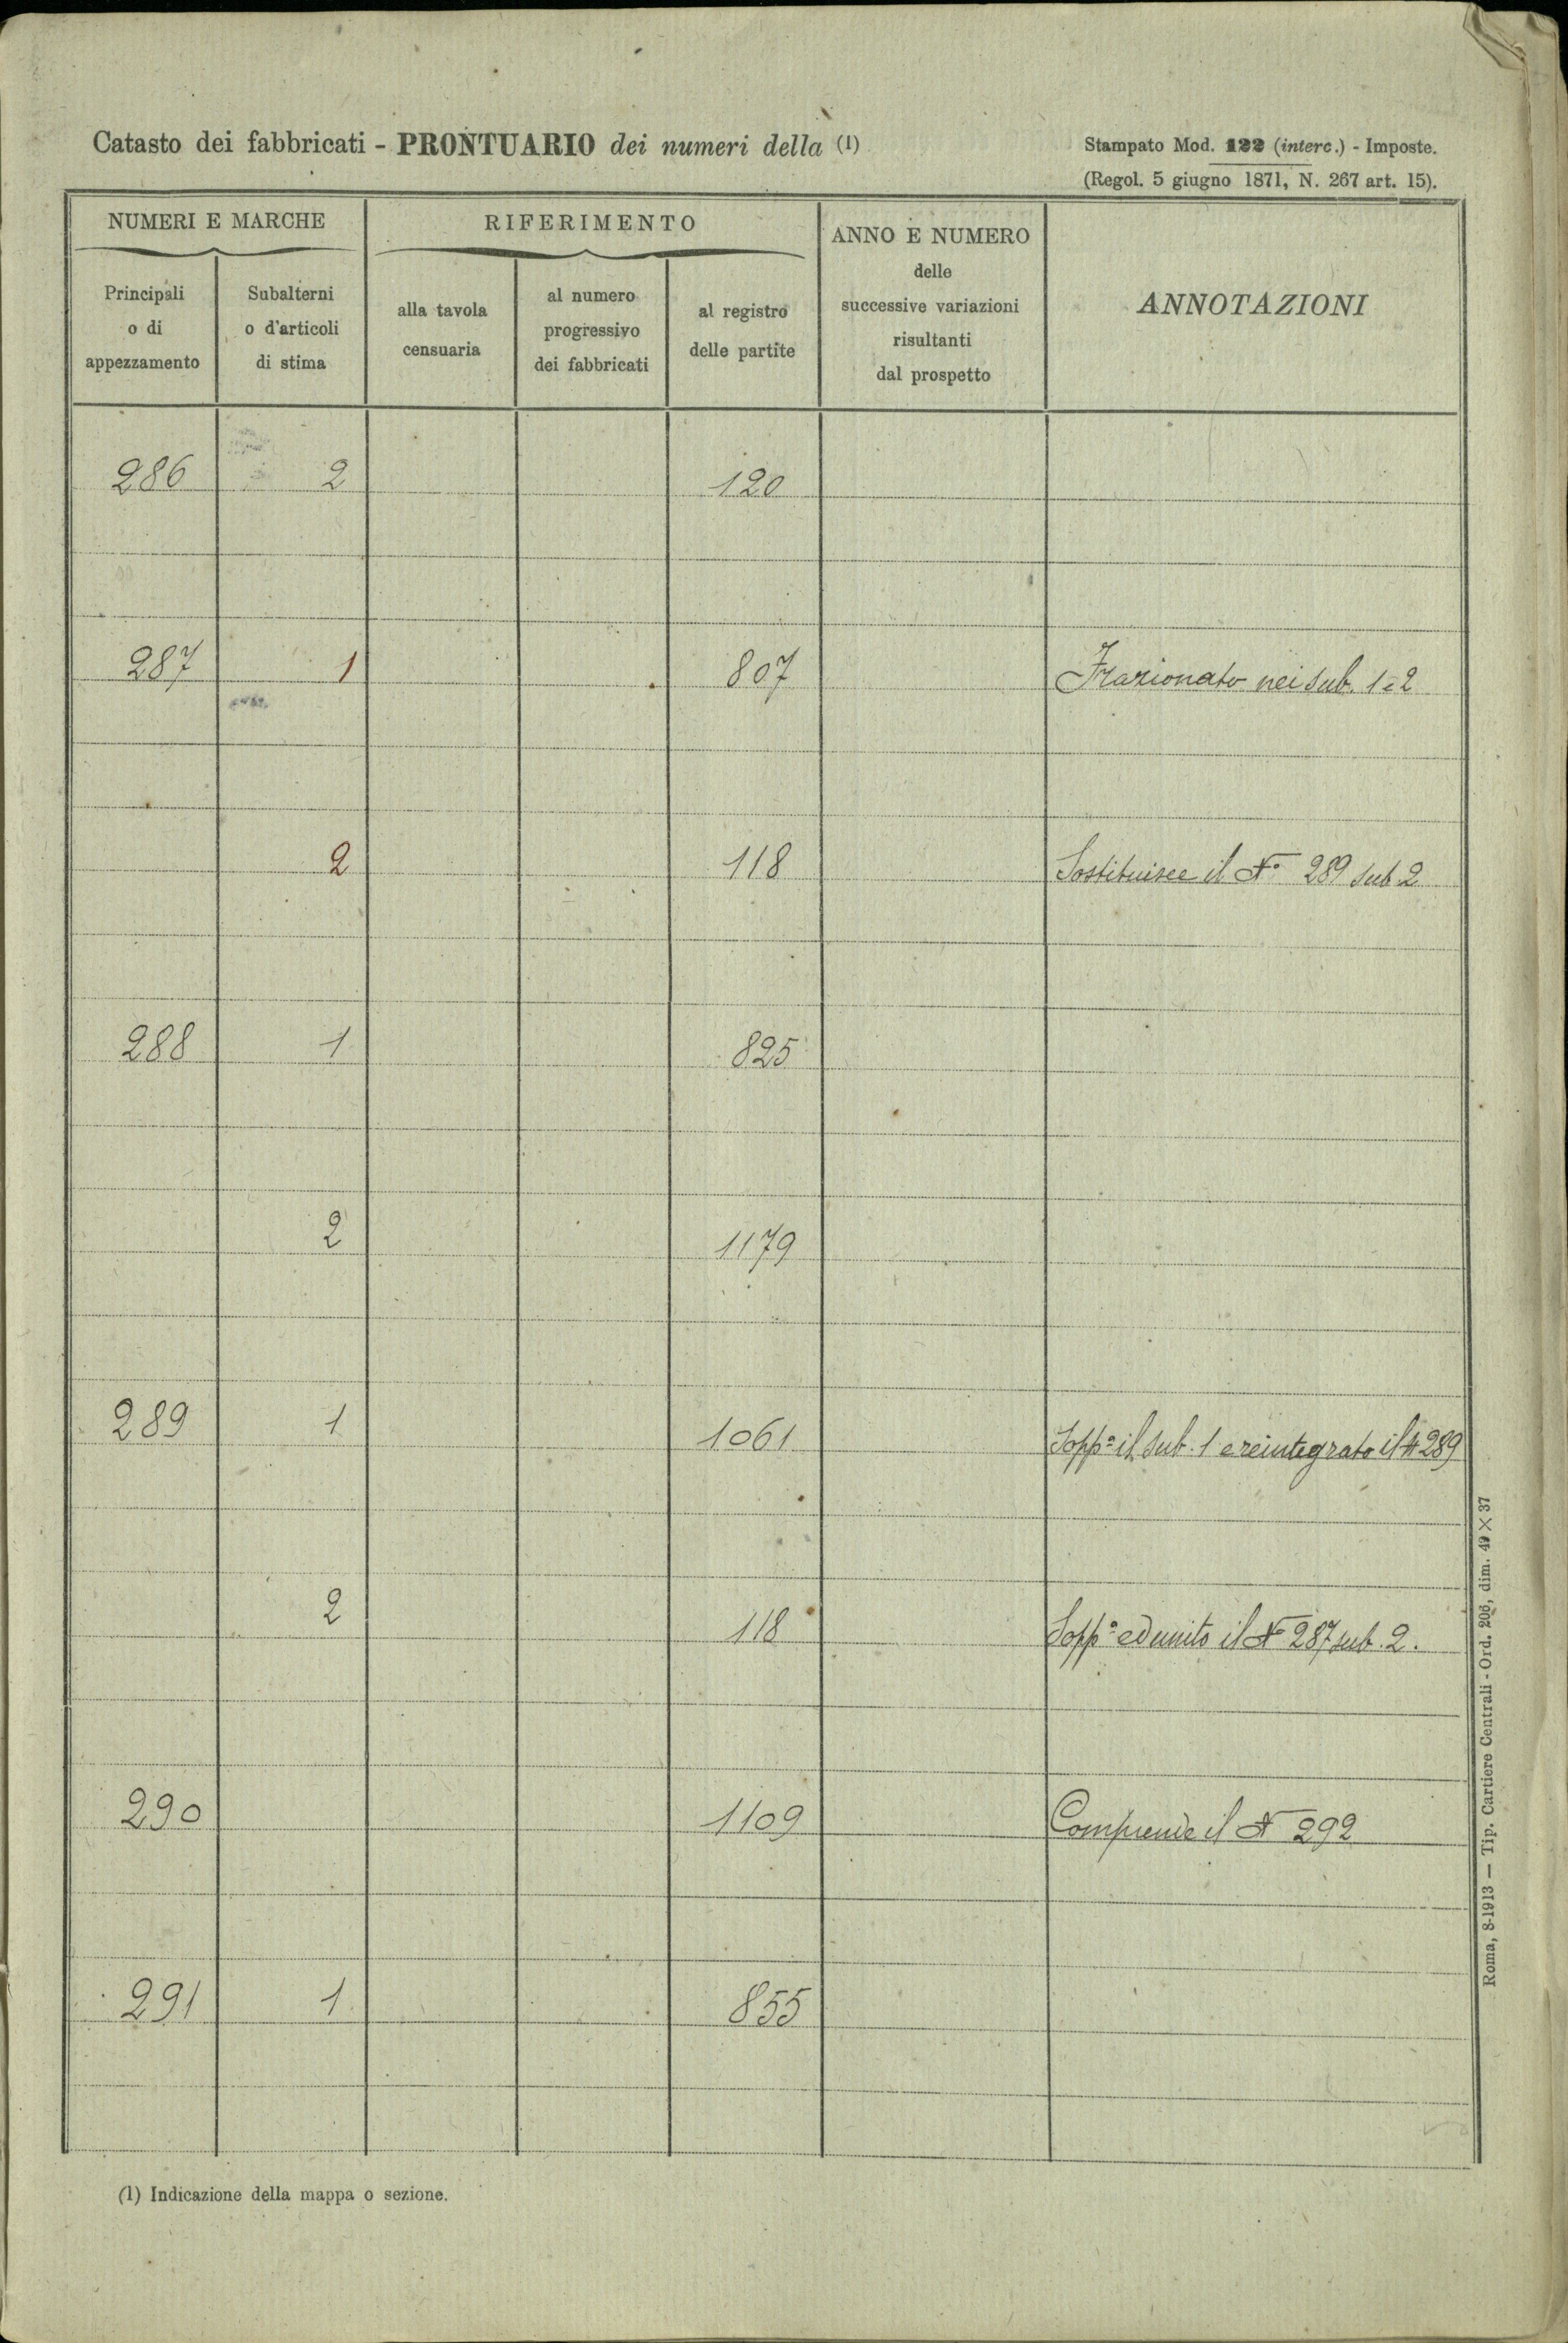 Catasto dei fabbricati - PRONTUARIO dei numeri della (1)
Stampato Mod. 122 (interc.) - Imposte.
(Regol. 5 giugno 1871, N. 267 art. 15).
NUMERI E MARCHE
RIFERIMENTO
ANNO E NUMERO
delle
successive variazioni
risultanti
dal prospetto
ANNOTAZIONI
Principali
o di
appezzamento
Subalterni
o d'articoli
di stima
alla tavola
censuaria
al numero
progressivo
dei fabbricati
al registro
delle partite
286 2 120
287 1 807 Frazionato nei sub. 1 e 2
2 118 Sostituisce il N° 289 sub 2
288 1 825
2 1179
289 1 1061 Sopp° il sub. 1 e reintegrato il N 289
2 118 Sopp° ed unito il N 287 sub. 2.
290 1109 Comprende il N 292
291 1 855
(1) Indicazione della mappa o sezione.
Roma, 8-1913 — Tip. Cartiere Centrali - Ord. 206, dim. 49 × 37